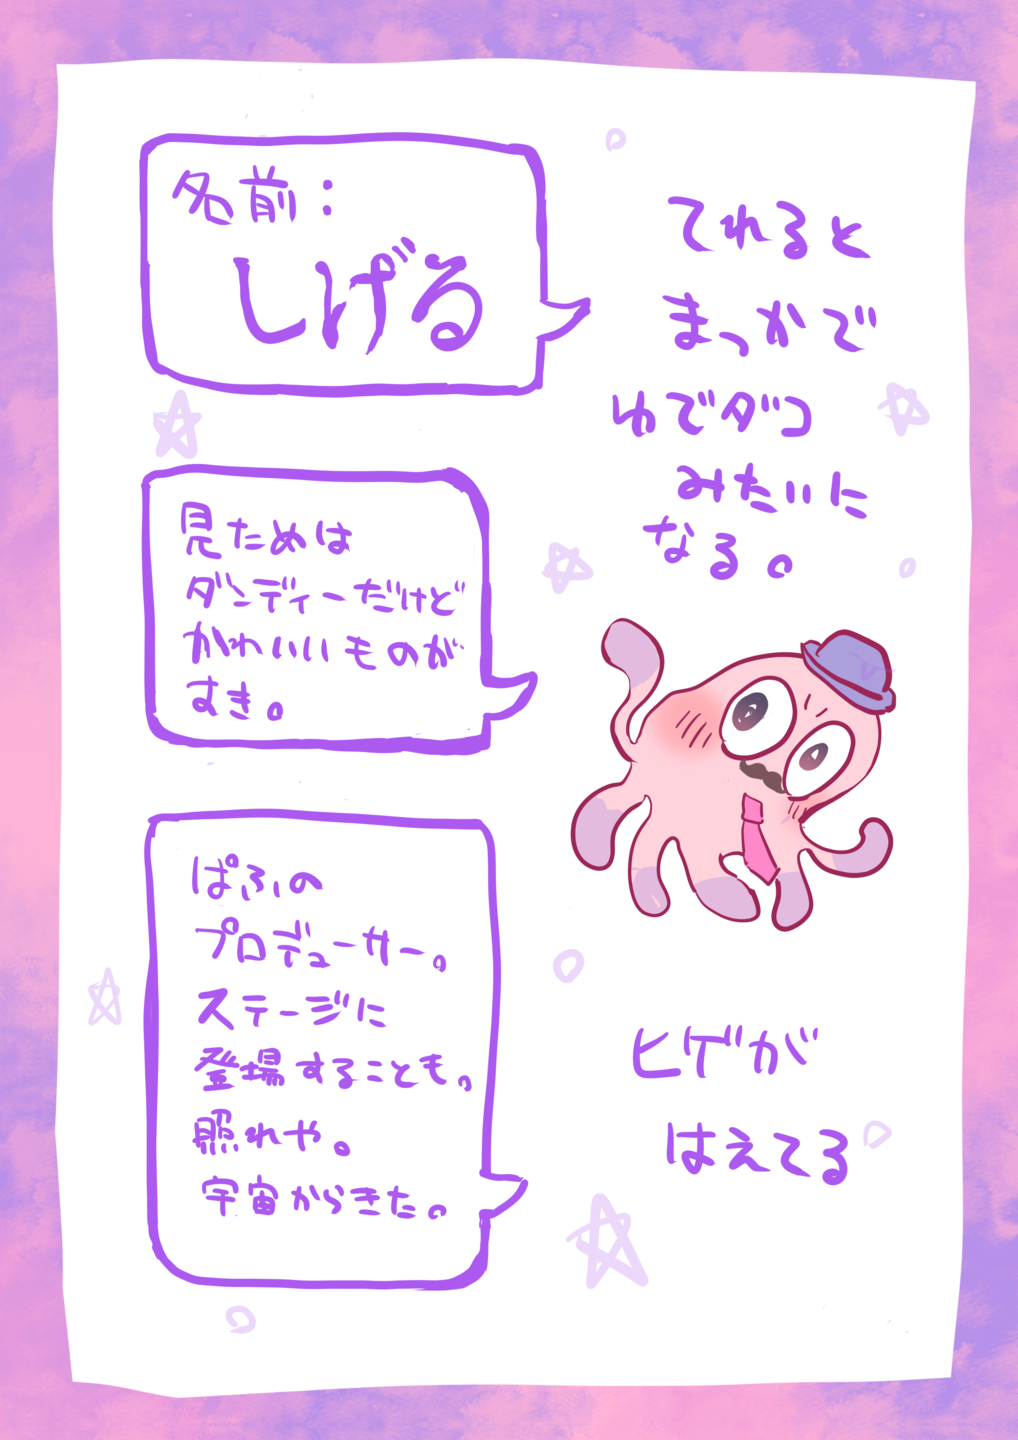 名前：
しげる
てれると
まっかで
ゆでダコ
みたいに
なる。
見ためは
ダンディーだけど
かわいいものが
すき。
ぱふの
プロデューサー。
ステージに
登場することも。
照れや。
宇宙からきた。
ヒゲが
はえてる